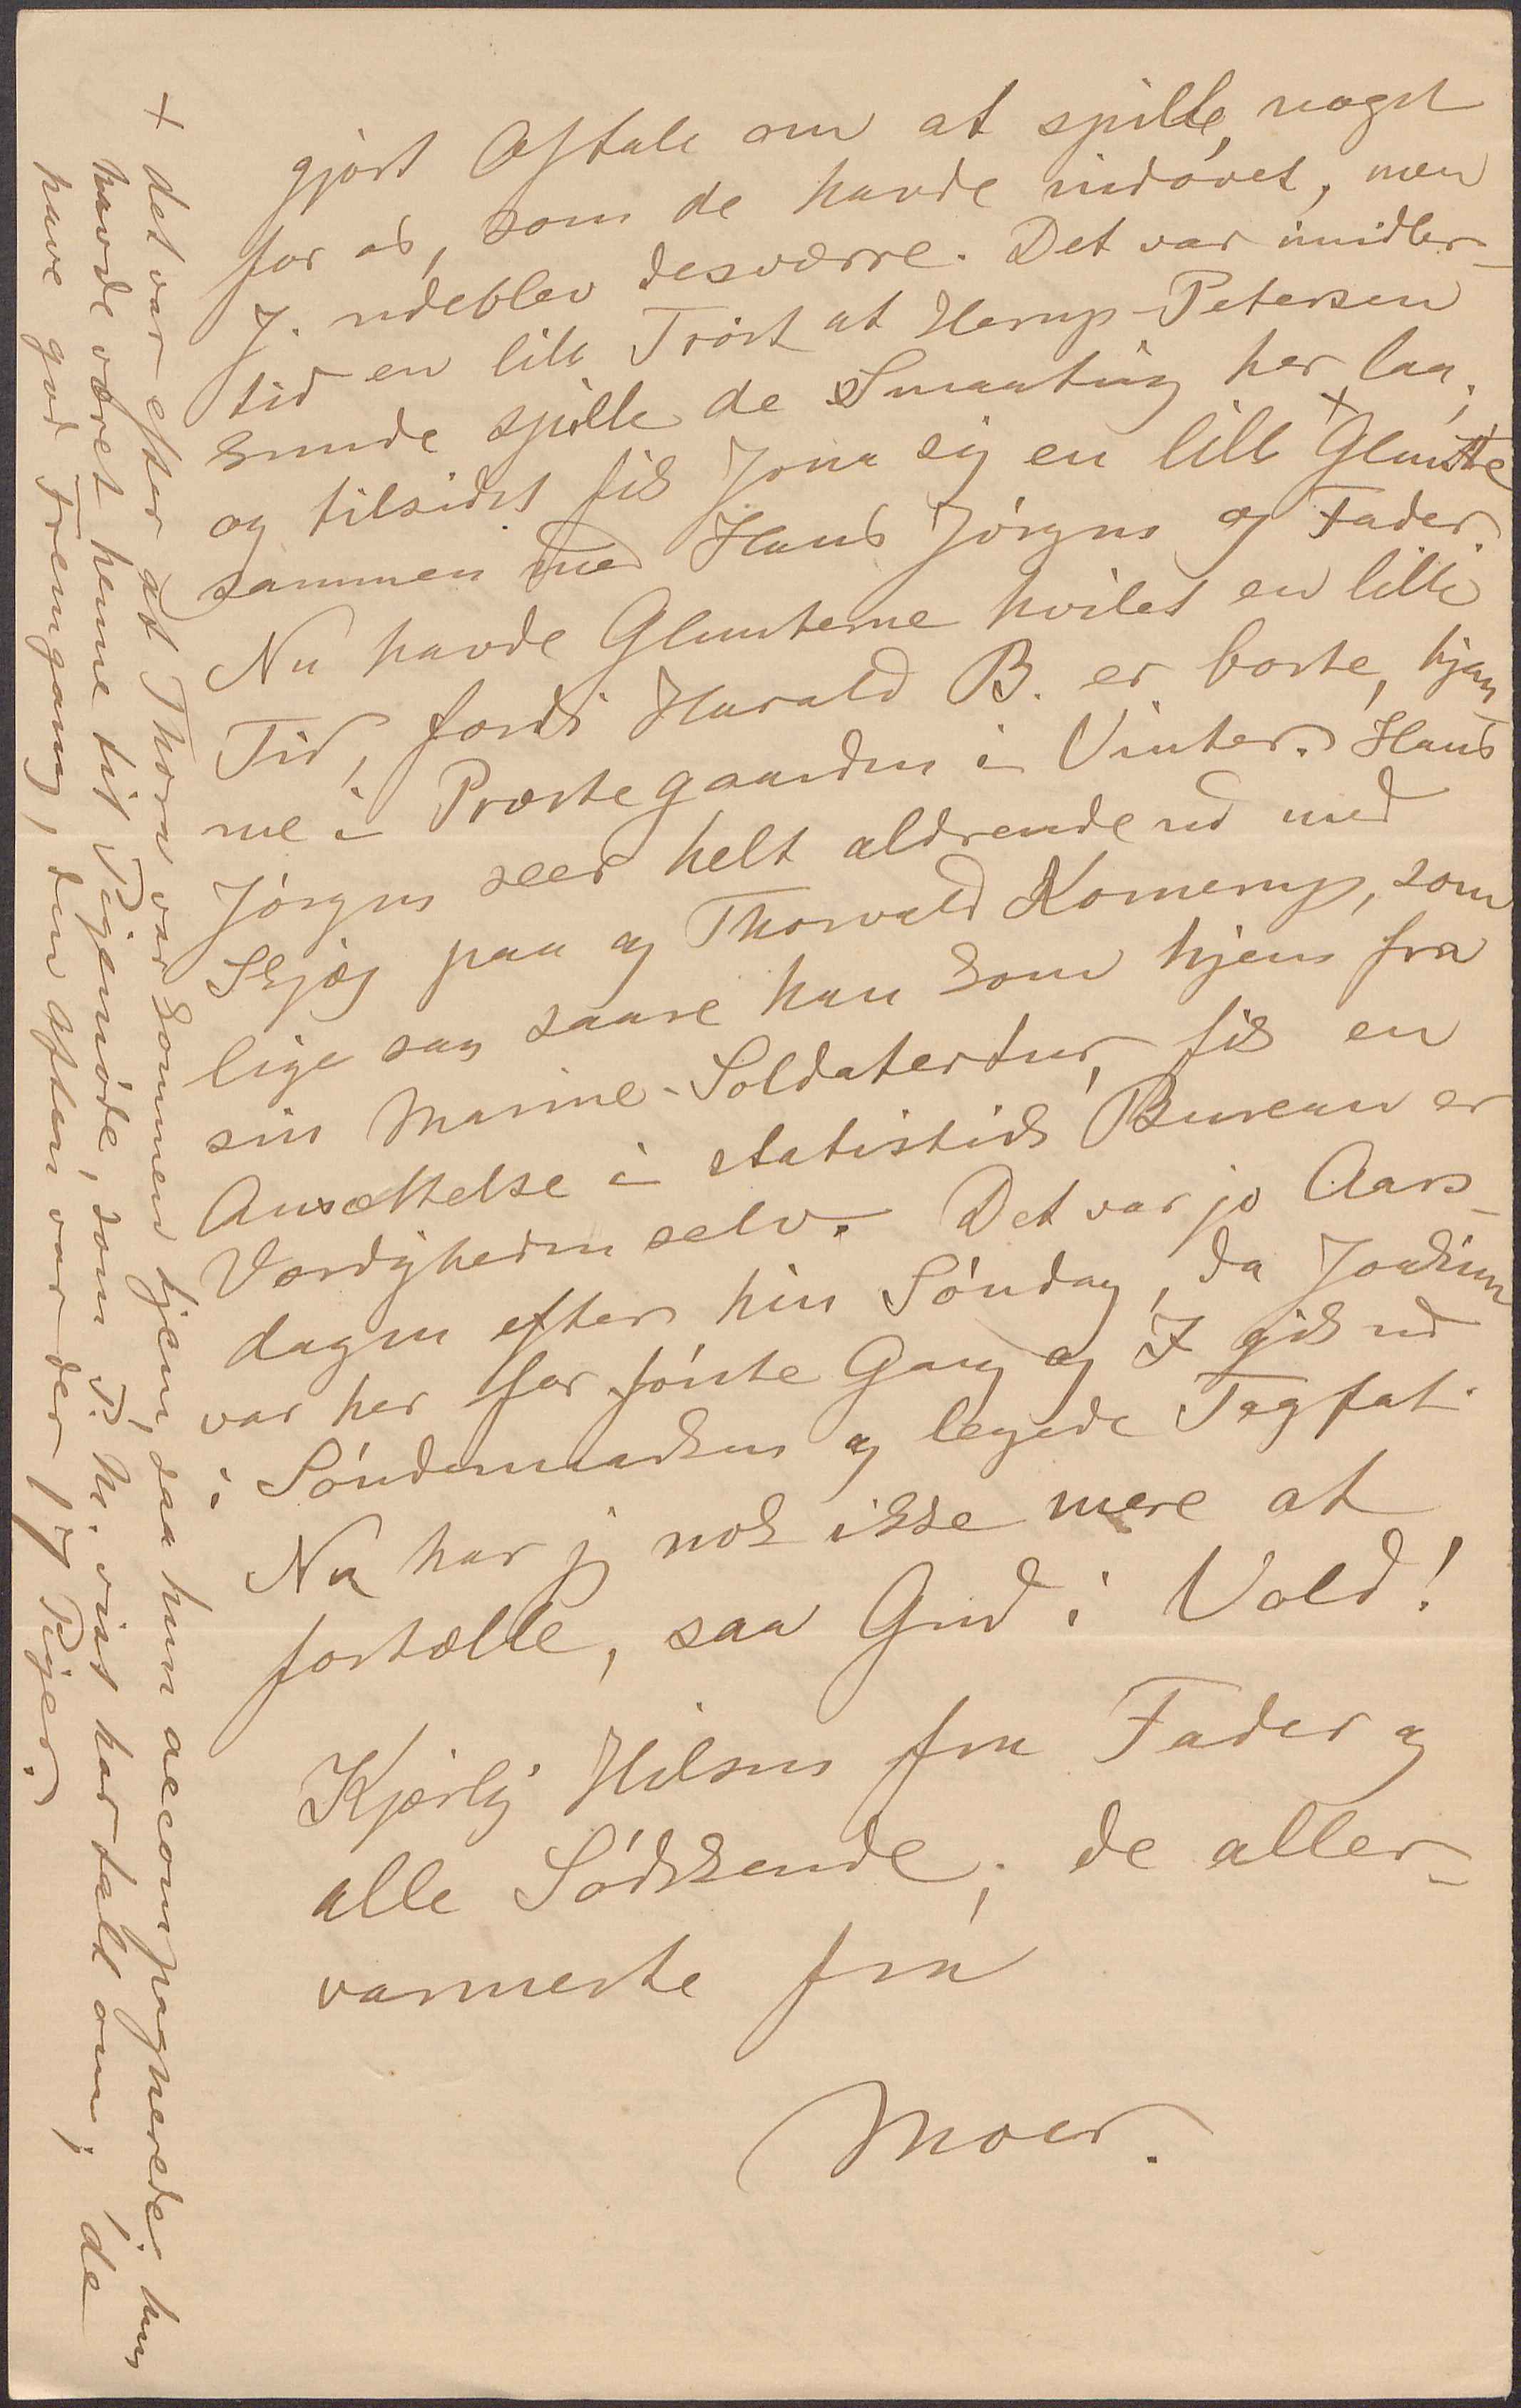 gjort Aftale om at spille noget
for os, som de havde indøvet, men
J. udeblev desværre. Det var imidler-
tid en lille Trøst at Herup-Petersen
kunde spille de Smaating her laa;
og tilsidst fik Jona sig en lille + Glunte
sammen med Hans Jörgen og Fader.
Nu havde Glunterne hvilet en lille
Tid, fordi Harald B. er borte, hjem-
me i Præstegaarden i Vinter. Hans
Jörgen seer helt aldrende ud med
Skjæg paa og Thorvald Kornerup, som
lige saa snare han kom hjem fra
sin Marine-Soldatertur, fik en
Ansættelse i statistisk Bureau er
Værdigheden selv. Det var jo Aars-
dagen efter hin Söndag, da Joakim
var her for förste Gang og I gik ud
i Söndermarken og legede Tagfat.
Nu har jeg nok ikke mere at
fortælle, saa Gud i Vold!
Kjærlig Hilsen fra Fader og
alle Södskende; de aller-
varmeste fra
Moer.
+ det var efter at Thora var kommen hjem, saa hun accompagnerede; hun
havde været henne til Pigemöde, som P. M. vist har talt om; de
have god Fremgang, den Aften var der 17 Piger.